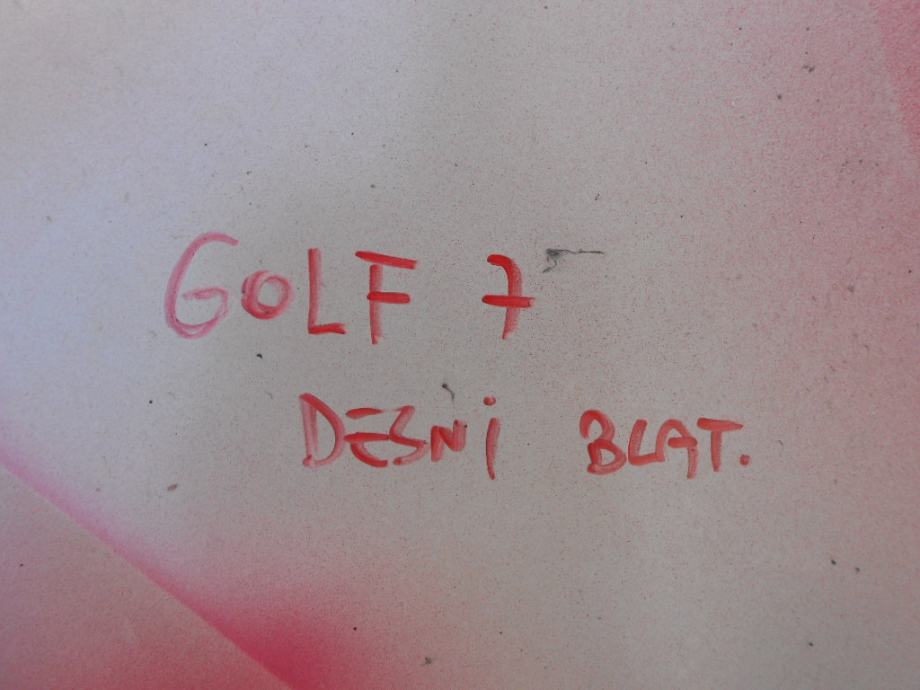 GOLF 7
DESNi BLAT.